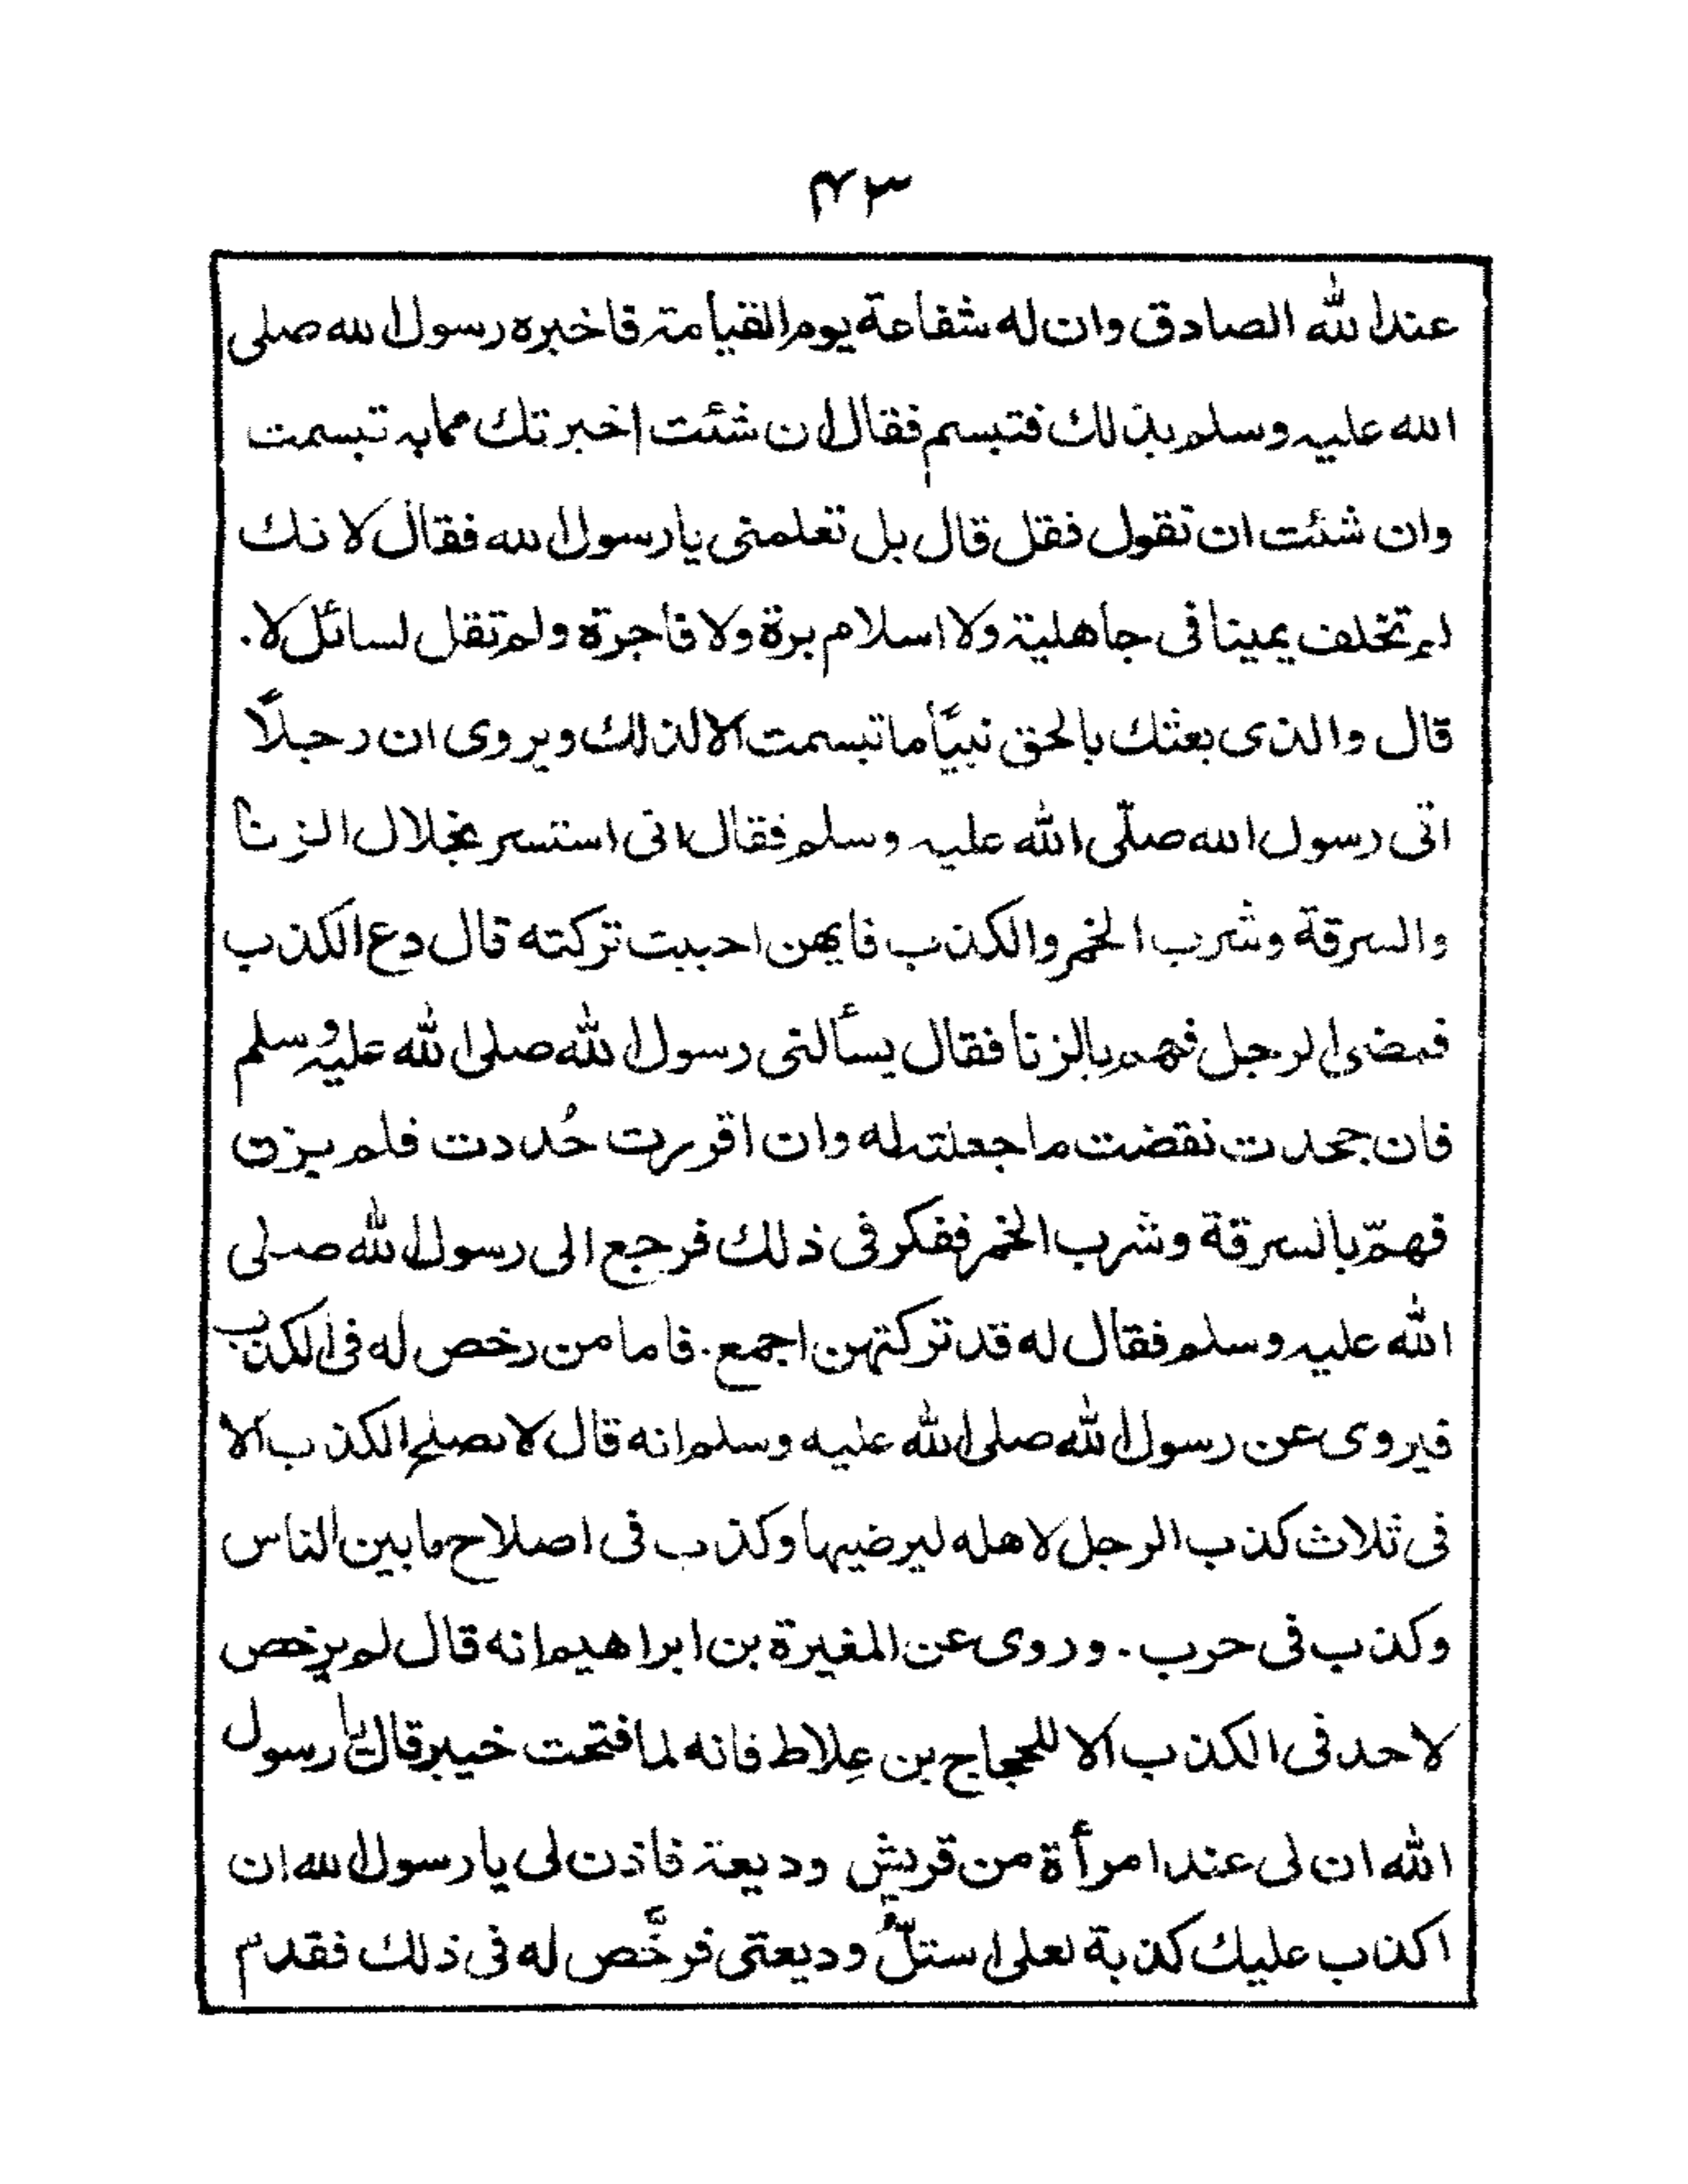 ۴۳
عند الله الصادق وان له شفاعة يوم القيامة فاخبره رسول الله صلى
الله عليه وسلم بذلك فتبسم فقال ان شئت اخبرتك مما به تبسمت
وان شئت ان تقول فقل قال بل تعلمنى يا رسول الله فقال لانك
لم تخلف يمينا فى جاهلية ولا اسلام برة ولا فاجرة ولم تقل لسائل لا.
قال والذى بعثك بالحق نبيًّا ما تبسمت الا لذلك ويروى ان رجلاً
اتى رسول الله صلّى الله عليه وسلم فقال انى استسر بخلال الزنا
والسرقة وشرب الخمر والكذب فايهن احببت تركته قال دع الكذب
فمضى الرجل فهم بالزنا فقال يسألنى رسول الله صلى الله عليه وسلم
فان جحدت نقضت ما جعلته له وان اقررت حُددت فلم يزن
فهمّ بالسرقة وشرب الخمر ففكر فى ذلك فرجع الى رسول الله صلى
الله عليه وسلم فقال له قد تركتهن اجمع. فاما من رخص له فى الكذب
فيروى عن رسول الله صلى الله عليه وسلم انه قال لا يصلح الكذب الا
فى ثلاث كذب الرجل لاهله ليرضيها وكذب فى اصلاح ما بين الناس
وكذب فى حرب. وروى عن المغيرة بن ابراهيم انه قال لم يرخص
لاحد فى الكذب الا للحجاج بن عِلاط فانه لما فتحت خيبر قال يا رسول
الله ان لى عند امرأة من قريش وديعة فاذن لى يا رسول الله ان
اكذب عليك كذبة لعلى استلّ وديعتى فرخَّص له فى ذلك فقدم